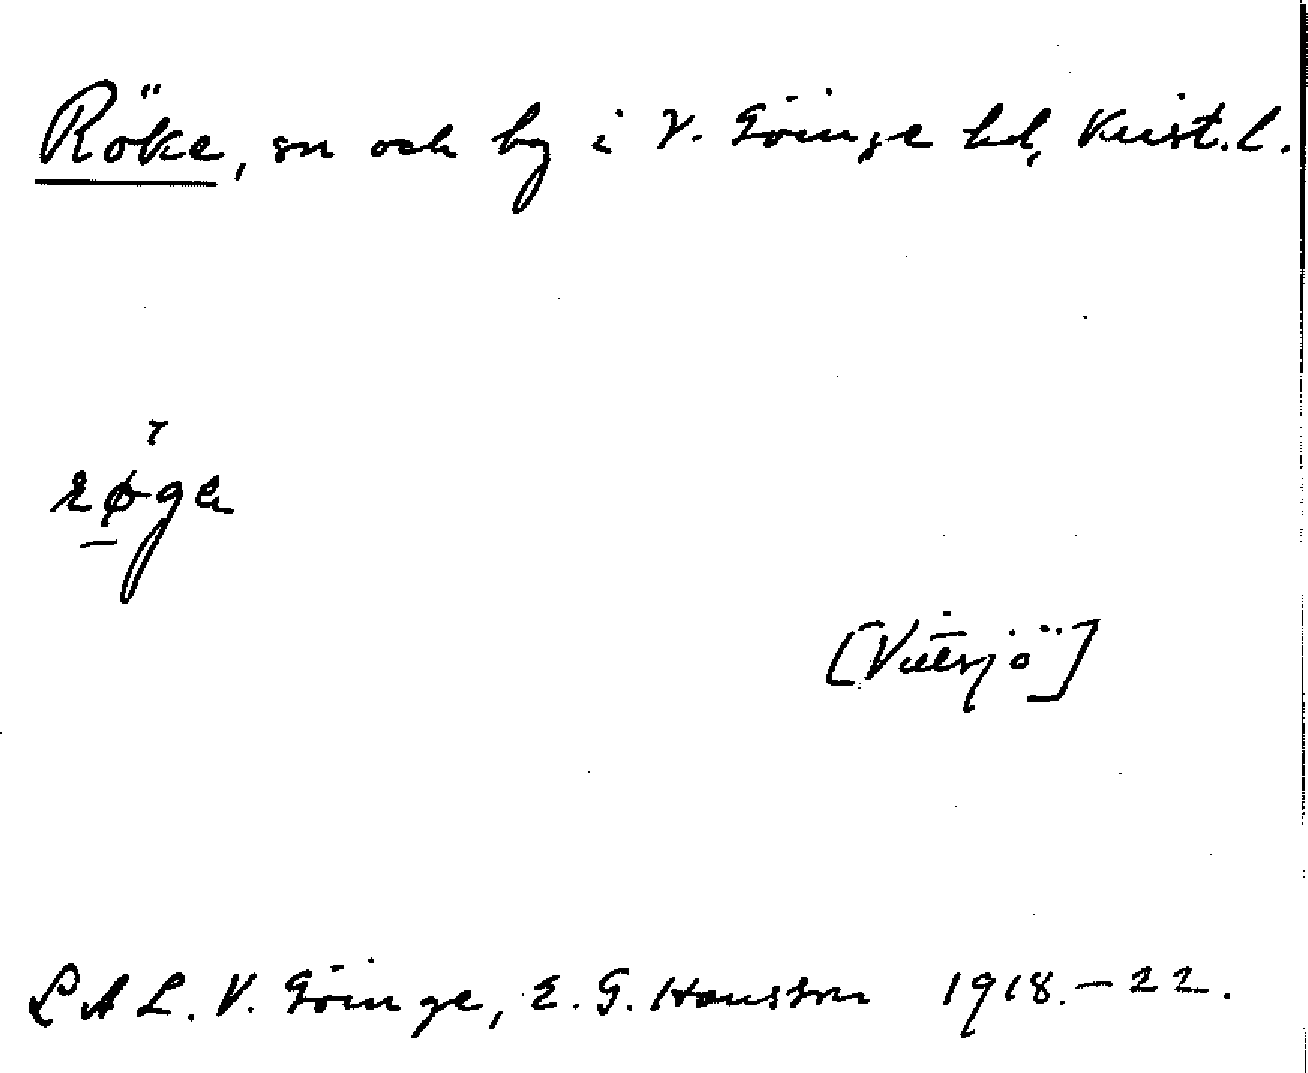 Röke, sn och by i V. Göinge hd, Krist. l.
røga
[Vittsjö]
LAL. V. Göinge, E. G. Hansson 1918.-22.